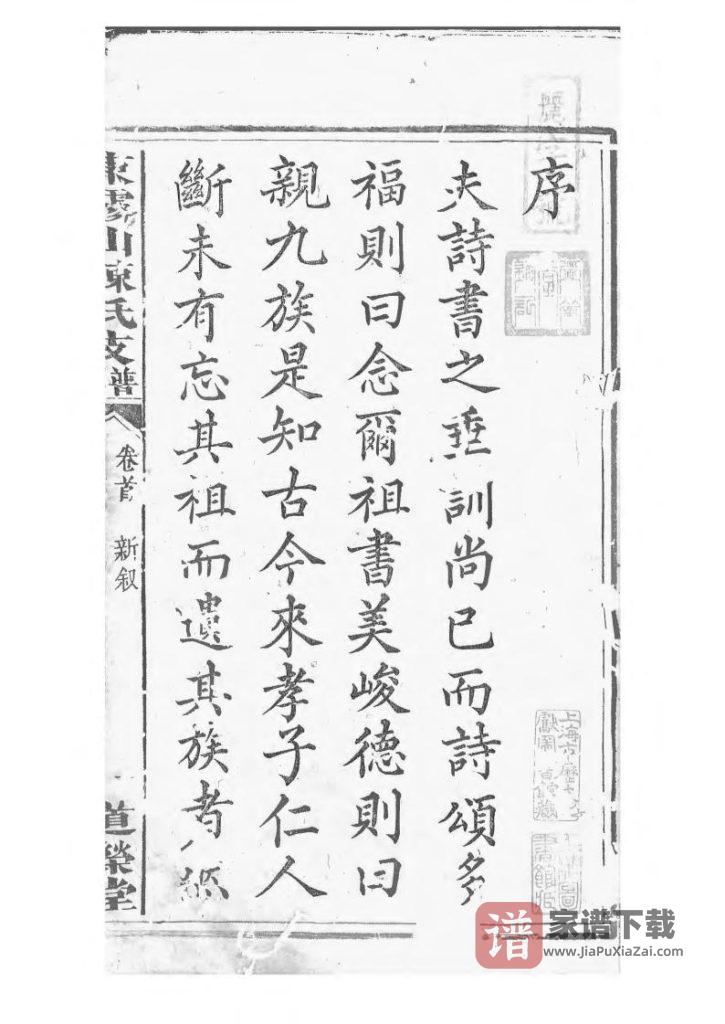 序
夫詩書之垂訓尚已而詩頌多
福則曰念爾祖書美峻德則曰
親九族是知古今來孝子仁人
斷未有忘其祖而遺其族者
東霞山陳氏支譜
卷首 新叙
道榮堂
上海市歷史
文獻圖書館藏
書館
谱
家谱下载
www.JiaPuXiaZai.com